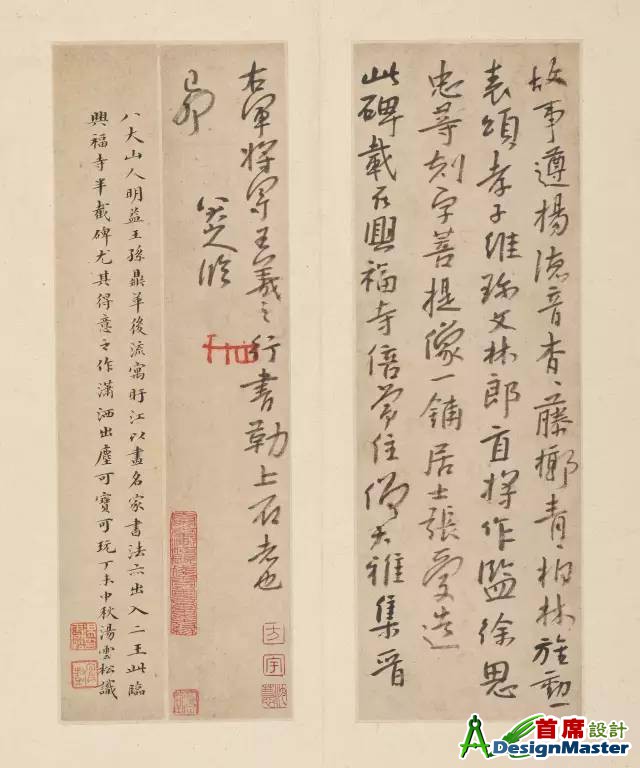 故事遵揚德音杳、藤鄉青、柏林旌勳
表頌孝子維琛文林郎直將作監徐思
忠等刻字菩提像一鋪居士張愛造
此碑載在興福寺陪常住僧大雅集晉
右軍將軍王羲之行書勒上石者也
八大山人臨
己卯
八大山人明益王孫鼎革後流寓盱江以畫名家書法亦出入二王此臨
興福寺半截碑尤其得意之作瀟洒出塵可寶可玩丁未中秋湯雲松識
方宇
首席設計
DesignMaster